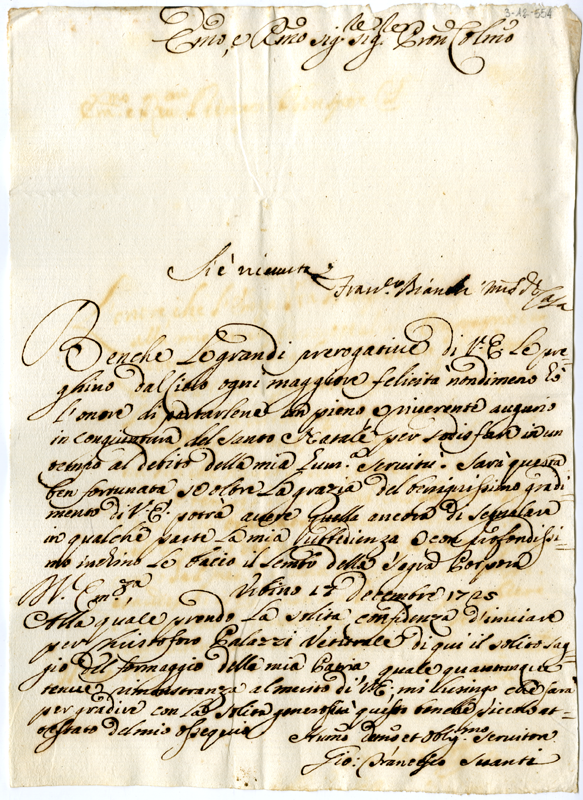 3-12-554
Emo, e Rmo Sig.re Sig.re Pron Colmo
Si è ricevuta
Fran.co Bianchi Mro di Casa
Benche le grandi prerogative di V.E. le pre-
ghino dal Cielo ogni maggiore felicità nondimeno hò
l'onore di portarlene un pieno e riverente augurio
in congiuntura del Santo Natale per sodisfare in un
tempo al debito della mia hum.a servitù. Sarà questa
ben fortunata se oltre la grazia del benignissimo gradi-
mento di V.E. potrà avere quella ancora di segnalare
in qualche parte la mia ubbidienza e con profondissi-
mo inchino le bacio il lembo della Sagra Porpora
Di V. Em.za Urbino 17 Decembre 1725
Alla quale prendo la solita confidenza d'inviare
per Cristoforo Palazzi Vetturale di qui il solito sag-
gio del formaggio della mia Patria quale quantunque
tenue rimostranza al merito di V.E. mi lusingo che sarà
per gradire con la solita generosità questo benche piccolo at-
testato del mio ossequio
Humo Devmo et Oblig.mo Servitore
Gio: Francesco